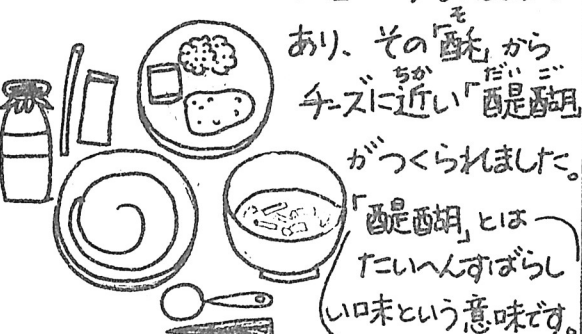 あり、その「酥」から
チーズに近い「醍醐」
がつくられました。
「醍醐」とは
たいへんすばらし
い味という意味です。